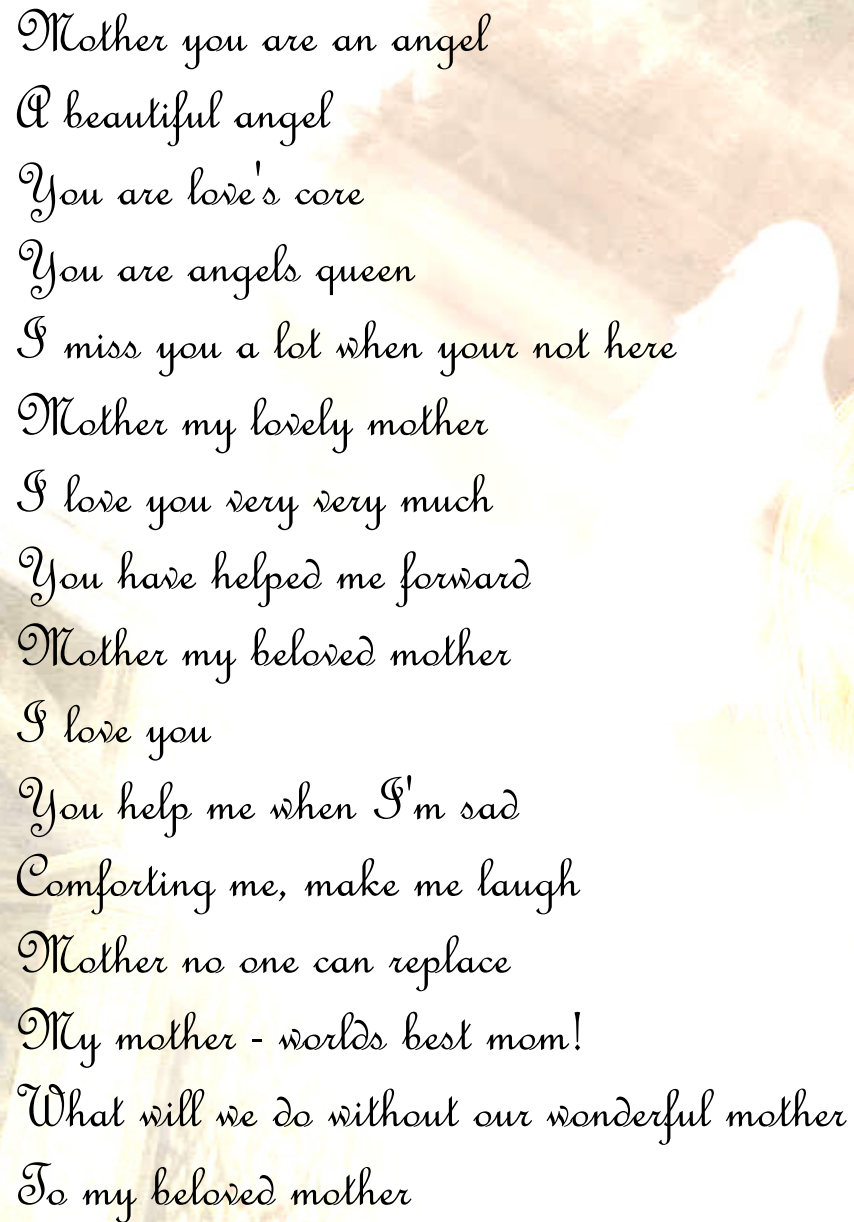 Mother you are an angel
A beautiful angel
You are love's core
You are angels queen
I miss you a lot when your not here
Mother my lovely mother
I love you very very much
You have helped me forward
Mother my beloved mother
I love you
You help me when I'm sad
Comforting me, make me laugh
Mother no one can replace
My mother - worlds best mom!
What will we do without our wonderful mother
To my beloved mother